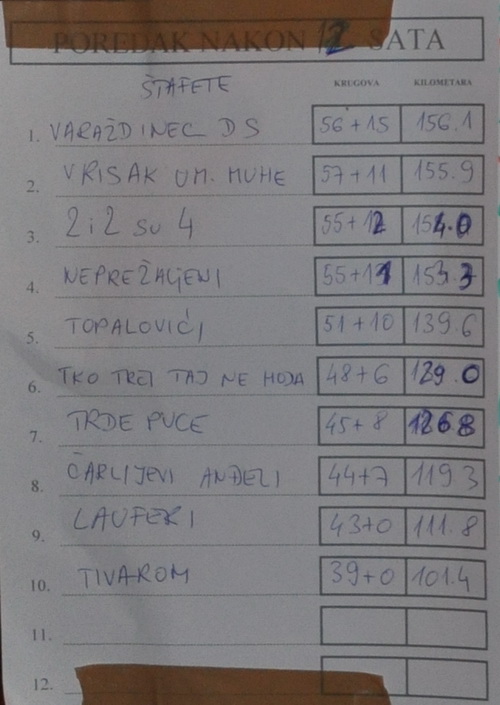 POREDAK NAKON 12 SATA
ŠTAFETE KRUGOVA KILOMETARA
1. VARAŽDINEC DS 56+15 156.1
2. VRISAK UM. MUHE 57+11 155.9
3. 2 i 2 SU 4 55+12 154.0
4. NEPREŽALJENI 55+11 153.3
5. TOPALOVIĆI 51+10 139.6
6. TKO TRČI TAJ NE HODA 48+6 129.0
7. TRDE PUCE 45+8 126.8
8. ČARLIJEVI ANĐELI 44+7 119.3
9. LAUFERI 43+0 111.8
10. TIVAROM 39+0 101.4
11.
12.